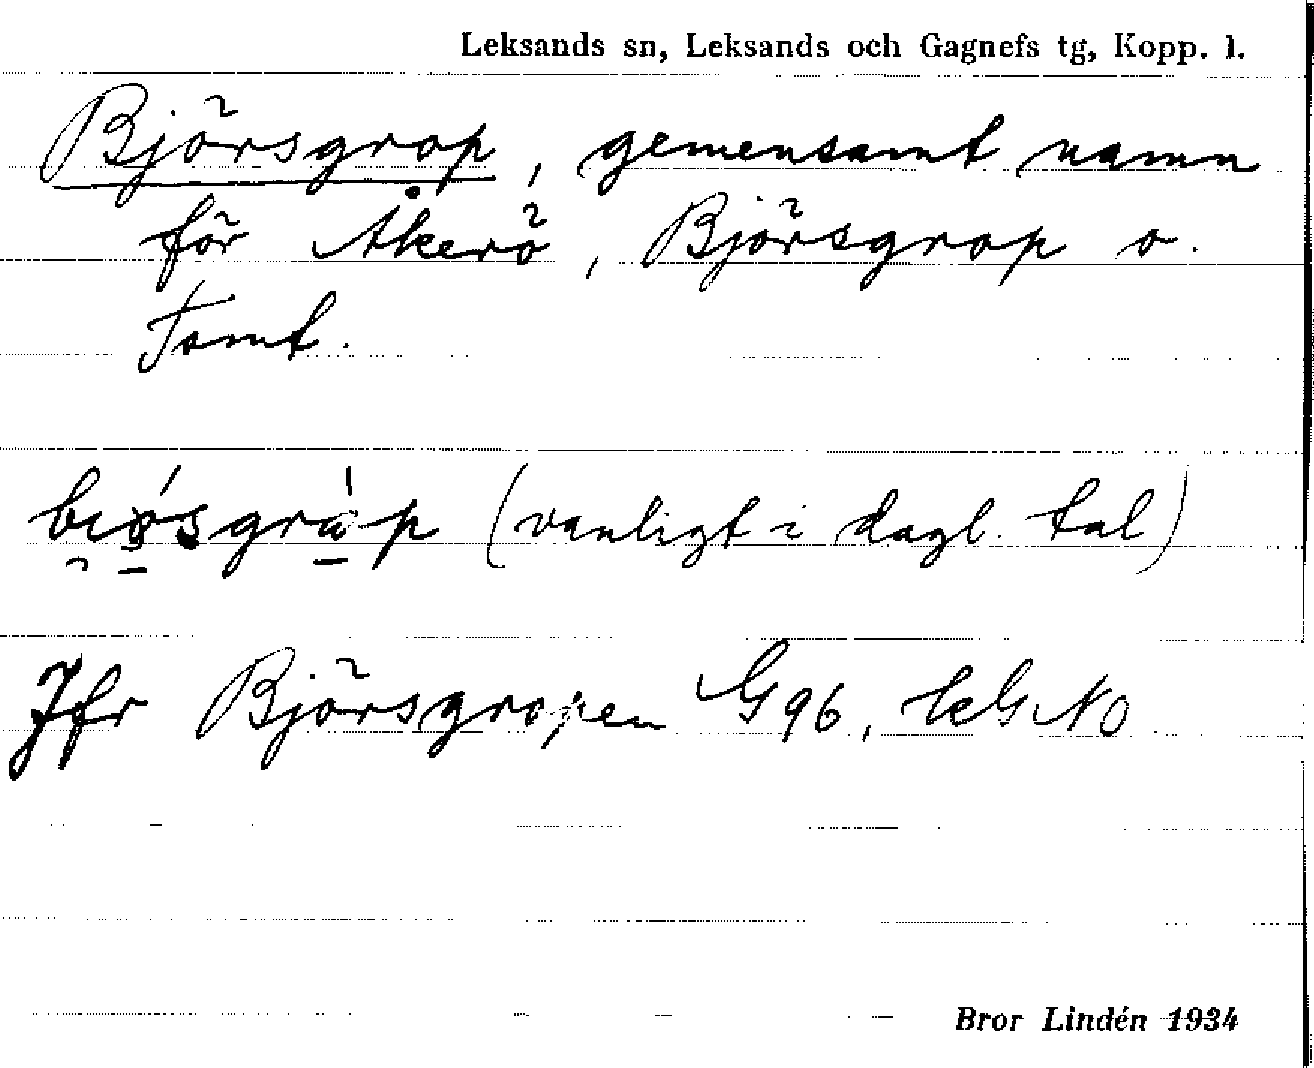 Leksands sn, Leksands och Gagnefs tg, Kopp. l.
Björsgrop, gemensamt namn
för Åkerö, Björsgrop o.
Tomt.
(vanligt i dagl. tal)
Jfr Björsgropen G96, lkG NO
Bror Lindén 1934